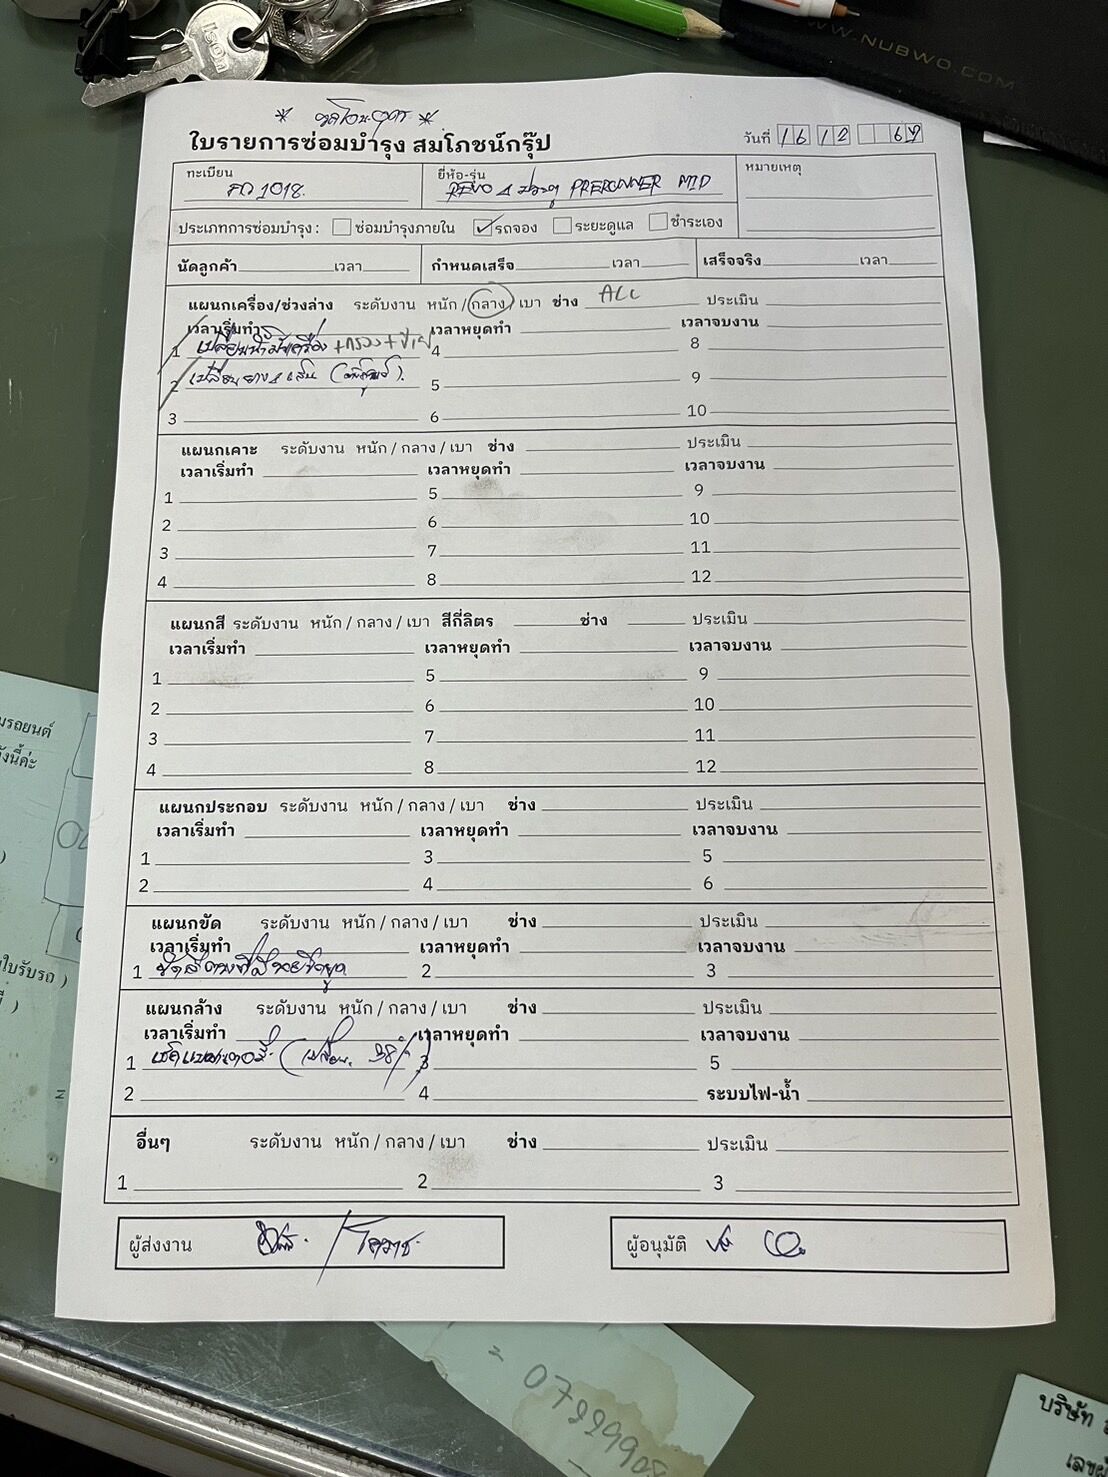 WWW.NUBWO.COM
ใบรายการซ่อมบำรุง สมโภชน์กรุ๊ป
วันที่ 16 12
ทะเบียน 1018.
ยี่ห้อ-รุ่น REVO 4 ประตู PRERUNNER MID
หมายเหตุ
ประเภทการซ่อมบำรุง : ซ่อมบำรุงภายใน รถจอง ระยะดูแล ชำระเอง
นัดลูกค้า เวลา กำหนดเสร็จ เวลา เสร็จจริง เวลา
แผนกเครื่อง/ช่วงล่าง ระดับงาน หนัก / กลาง / เบา ช่าง ALL ประเมิน
เวลาเริ่มทำ เวลาหยุดทำ เวลาจบงาน
1 เปลี่ยนน้ำมันเครื่อง +กรอง 4 8
2 เปลี่ยนยาง 4 เส้น 5 9
3 6 10
แผนกเคาะ ระดับงาน หนัก / กลาง / เบา ช่าง ประเมิน
เวลาเริ่มทำ เวลาหยุดทำ เวลาจบงาน
1 5 9
2 6 10
3 7 11
4 8 12
แผนกสี ระดับงาน หนัก / กลาง / เบา สีกี่ลิตร ช่าง ประเมิน
เวลาเริ่มทำ เวลาหยุดทำ เวลาจบงาน
1 5 9
2 6 10
3 7 11
4 8 12
แผนกประกอบ ระดับงาน หนัก / กลาง / เบา ช่าง ประเมิน
เวลาเริ่มทำ เวลาหยุดทำ เวลาจบงาน
1 3 5
2 4 6
แผนกขัด ระดับงาน หนัก / กลาง / เบา ช่าง ประเมิน
เวลาเริ่มทำ เวลาหยุดทำ เวลาจบงาน
1 2 3
แผนกล้าง ระดับงาน หนัก / กลาง / เบา ช่าง ประเมิน
เวลาเริ่มทำ เวลาหยุดทำ เวลาจบงาน
1 เช็คแบตเตอรี่ (เปลี่ยน 3 5
2 4 ระบบไฟ-น้ำ
อื่นๆ ระดับงาน หนัก / กลาง / เบา ช่าง ประเมิน
1 2 3
ผู้ส่งงาน / โคราช
ผู้อนุมัติ
มรถยนต์
ังนี้ค่ะ
ใบรับรถ )
บริษัท